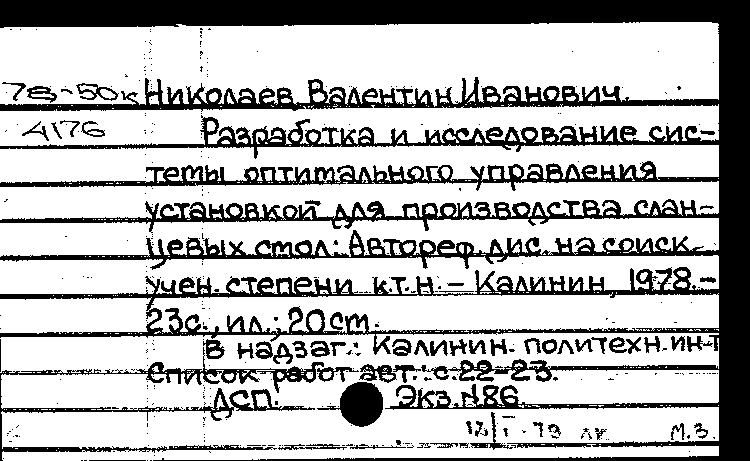 78-50к Николаев Валентин Иванович.
4176 Разработка и исследование сис-
темы оптимального управления
установкой для производства слан-
цевых смол: Автореф. дис. на соиск.
учен. степени к.т.н. – Калинин, 1978.–
23с., ил.; 20 cm.
В надзаг.: Калинин. политехн. ин-т
Список работ авт.: с.22-23.
ДСП. Экз. N86.
12/I-79 М.З.